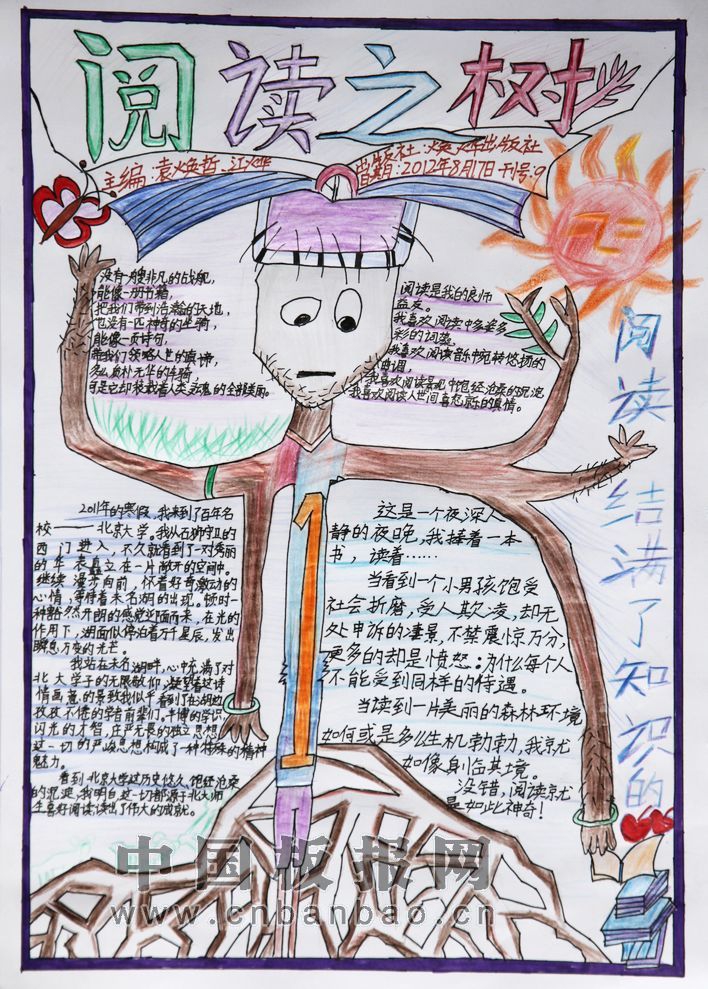 阅读之树
主编:袁焕哲、江烨
出版社:焕烨出版社
2012年8月17日 刊号:9
没有一艘非凡的战舰,
能像一册书籍,
把我们带到浩瀚的天地,
也没有一匹神奇的坐骑
能像一页诗句,
带我们领略人世的真谛,
多么质朴无华的车骑
可是它却装载着人类灵魂的全部美丽。
阅读是我的良师
益友。
我喜欢阅读中多姿多
彩的词藻。
我喜欢阅读音乐中宛转悠扬的
曲调,
我喜欢阅读景观中饱经沧桑的沉淀
我喜欢阅读人世间喜怒哀乐的真情。
阅读结满了知识的
2011年的寒假,我来到了百年名
校——北京大学。我从石狮守卫的
西门进入,不久就看到了一对秀丽
的华表矗立在一片敞开的空间中。
继续漫步向前,怀着好奇激动的
心情,等待着未名湖的出现。顿时一
种豁然开朗的感觉迎面而来,在光的
作用下,湖面似停泊着万千星辰,发出
瞬息万变的光芒。
我站在未名湖畔,心中充满了对
北大学子的无限敬仰,凝望着这诗
情画意的景致我似乎看到了在湖边
孜孜不倦的学者前辈们。丰博的学识
闪光的才智,庄严无畏的独立思想
这一切的严峻思想构成了一种特殊的精神
魅力。
看到北京大学这历史悠久、饱经沧桑
的沉淀,我明白这一切都源于北大师
生喜好阅读,读出了伟大的成就。
这是一个夜深人
静的夜晚,我揉着一本
书,读着……
当看到一个小男孩饱受
社会折磨,受人欺凌,却无
处申诉的凄景,不禁震惊万分,
更多的却是愤怒:为什么每个人
不能受到同样的待遇。
当读到一片美丽的森林环境
如何或是多么生机勃勃,我就尤
如像身临其境。
没错,阅读就
是如此神奇!
中国板报网
www.cnbanbao.cn